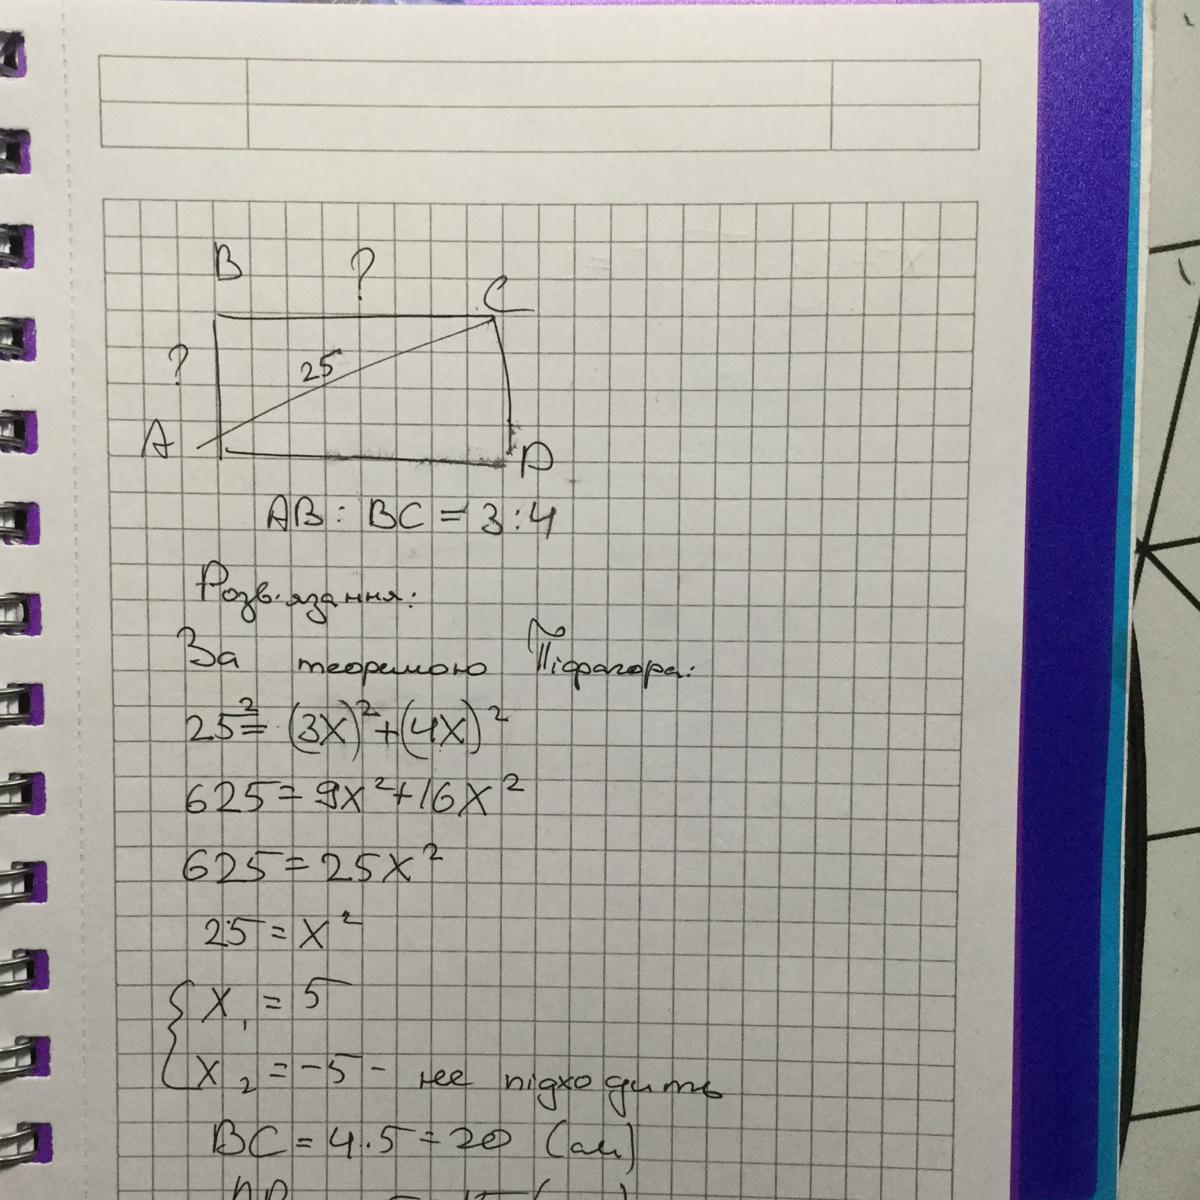 B ? C
? 25
A D
AB : BC = 3:4
Розв.язання:
За теоремою Піфагора:
25² = (3x)² + (4x)²
625 = 9x² + 16x²
625 = 25x²
25 = x²
x₁ = 5
x₂ = -5 - не підходить
BC = 4·5 = 20 (см)